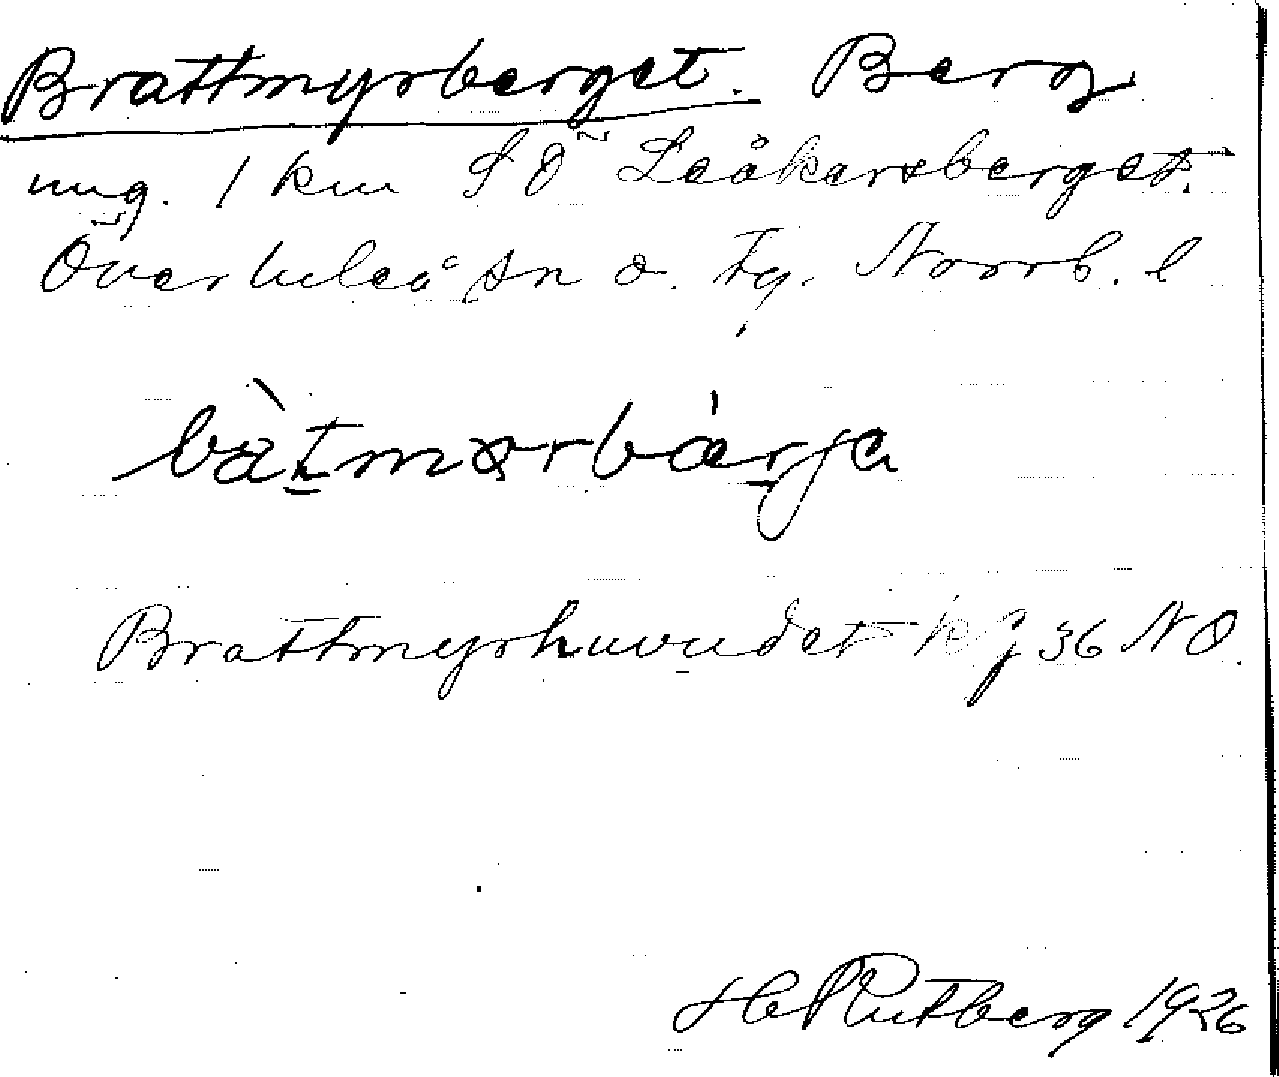 Brattmyrberget. Berg
ung. 1 km SÖ Leåkersberget.
Överluleå sn o. tg. Norrb. l
Brattmyrhuvudet k g 36 NO.
H Rutberg 1926